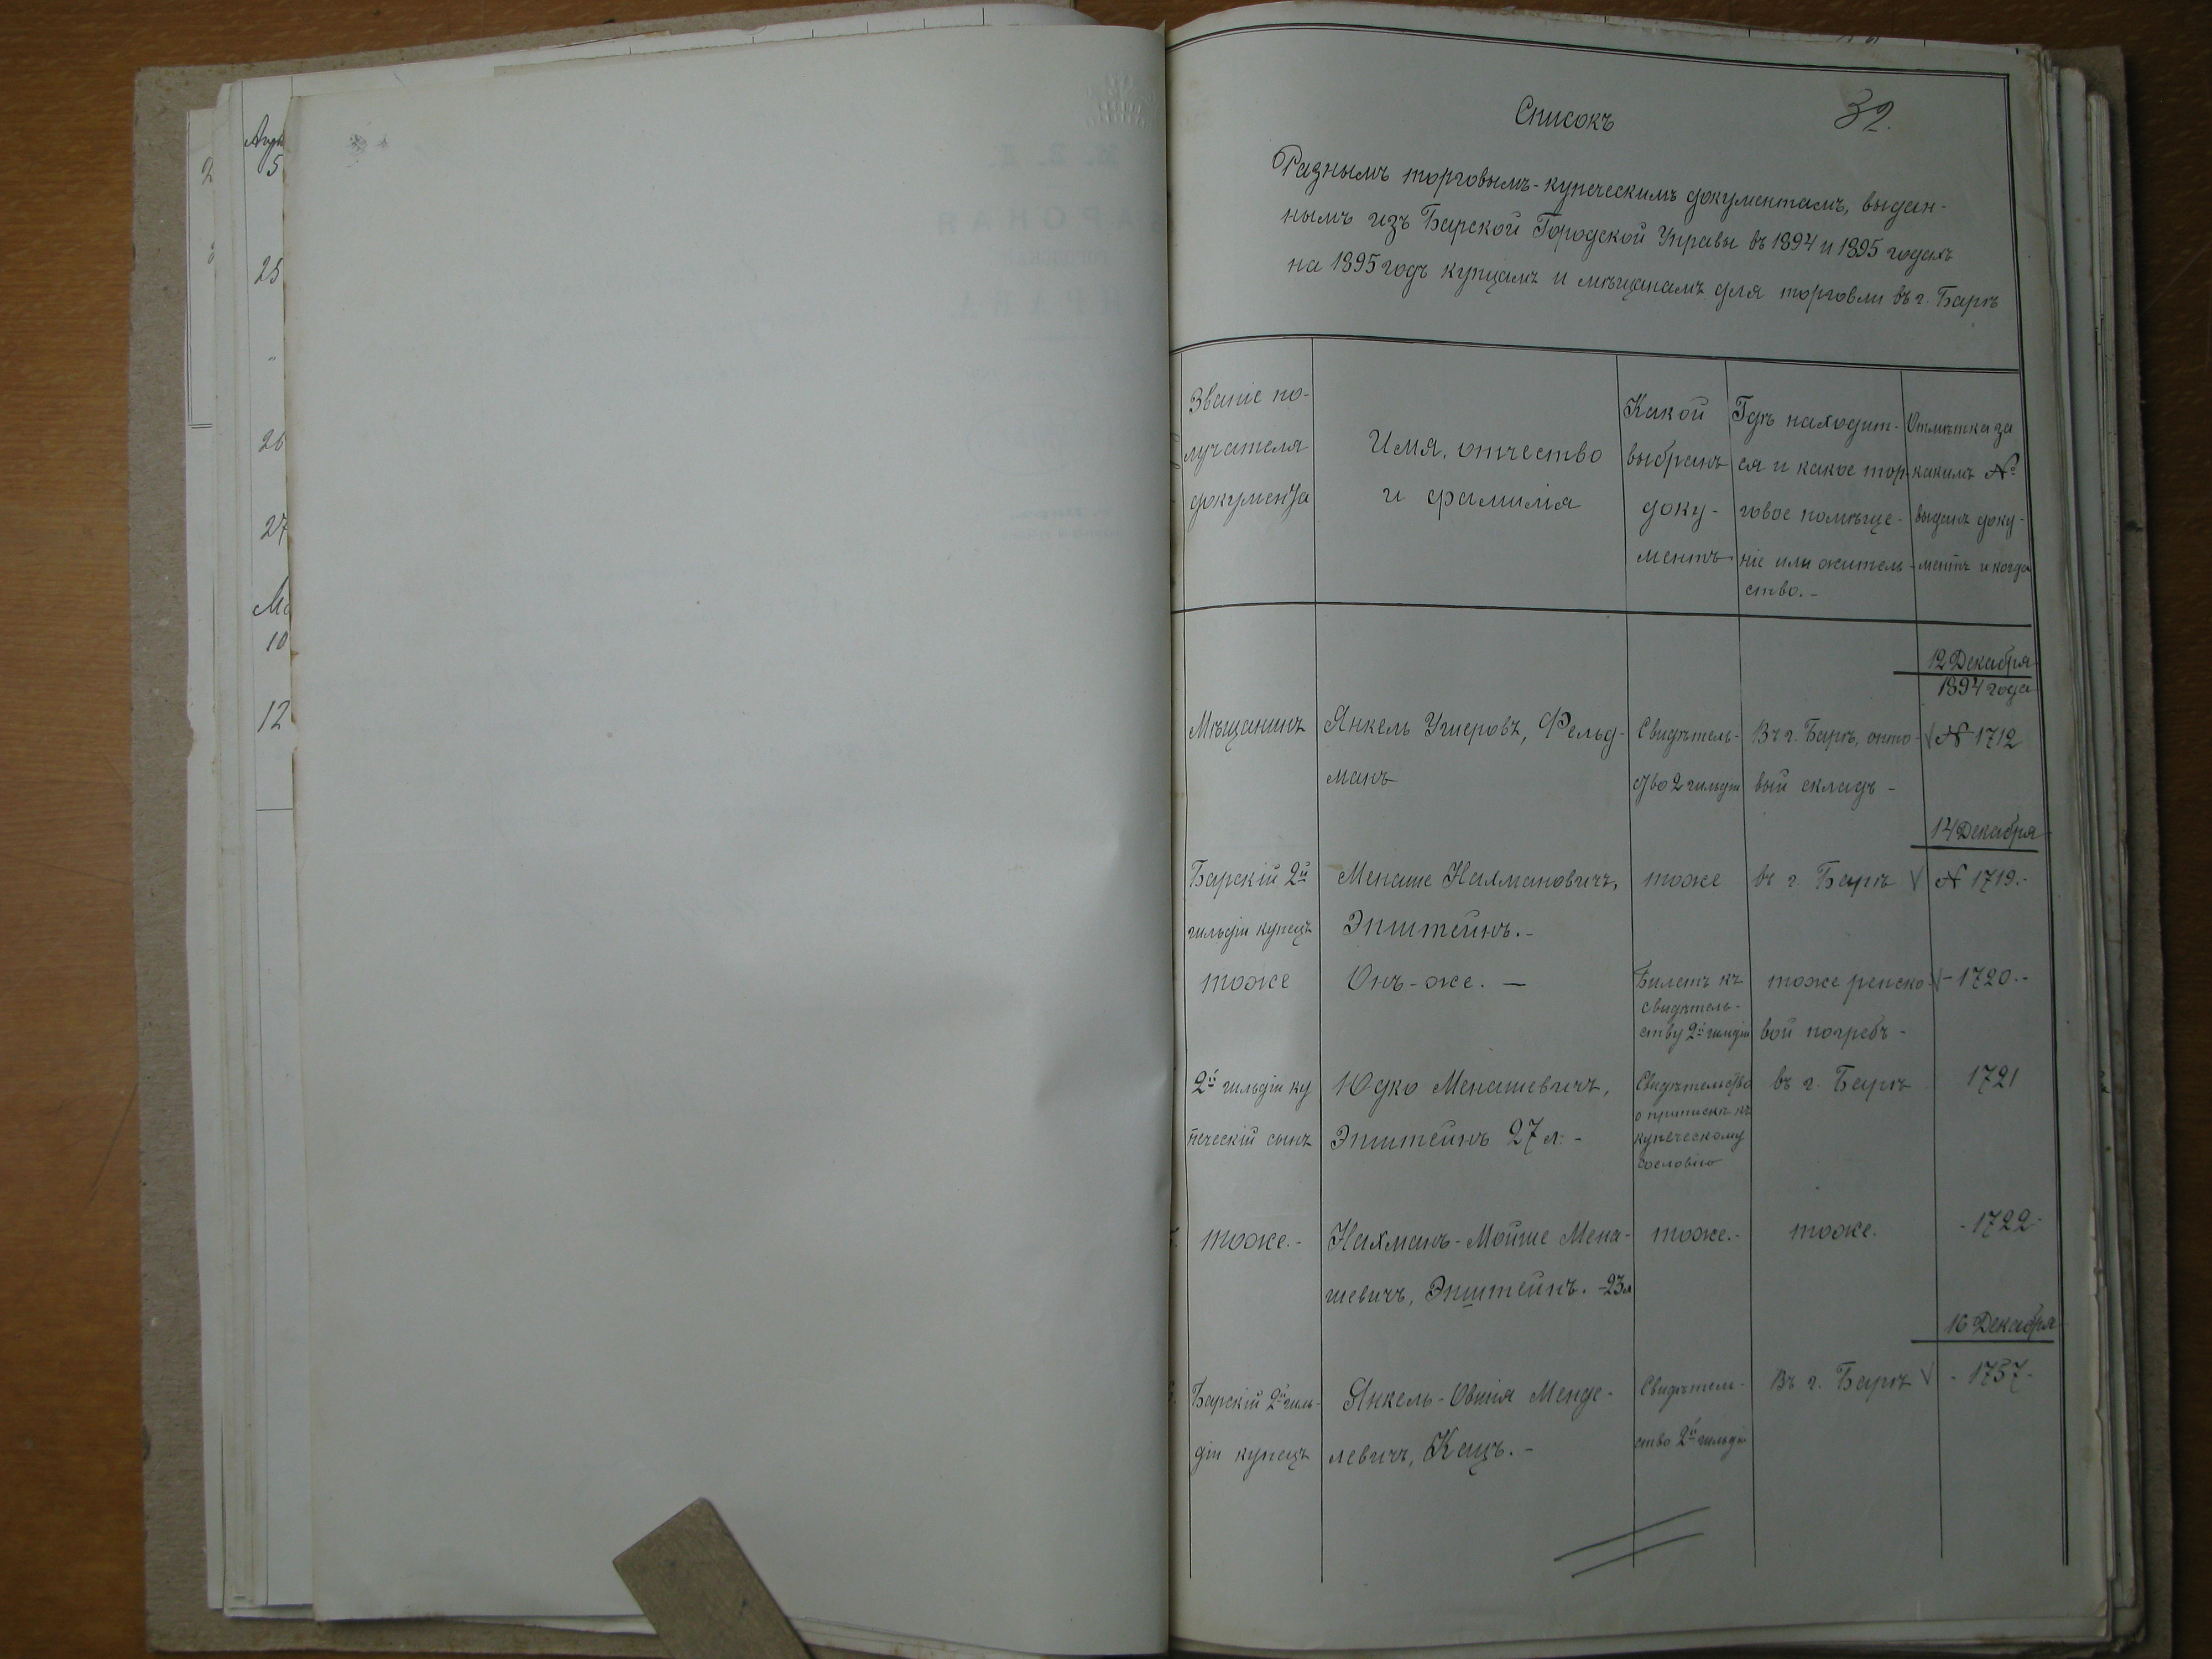 Списокъ
32.
Разнымъ торговымъ-купеческимъ документамъ, выдан-
нымъ изъ Барской Городской Управы въ 1894 и 1895 годахъ
на 1895 годъ купцамъ и мѣщанамъ для торговли въ г. Барѣ
Званіе по-
лучателя
документа
Имя, отчество
и фамилія
Какой
выбранъ
доку-
ментъ
Гдѣ находит-
ся и какое тор-
говое помѣще-
ніе или житель-
ство.-
Отмѣтка за
какимъ №
выданъ доку-
ментъ и когда
12 Декабря
1894 года
Мѣщанинъ
Янкель Ушеровъ, Фельд-
манъ
Свидѣтель-
ство 2 гильдіи
Въ г. Барѣ, опто-
вый складъ -
√ № 1712
14 Декабря
Барскій 2й
гильдіи купецъ
Менаше Нахмановичъ,
Эпштейнъ.-
тоже
въ г. Барѣ
√ № 1719.-
тоже
Онъ-же. —
Билетъ къ
свидѣтель-
ству 2й гильдіи
тоже ренско-
вой погребъ -
√ - 1720.-
2й гильдіи ку
печескій сынъ
Юдко Менашевичъ,
Эпштейнъ 27 л. -
Свидѣтельство
о припискѣ къ
купеческому
сословію
въ г. Барѣ
1721
тоже.-
Нахманъ-Мойше Мена-
шевичъ, Эпштейнъ. -23 л
тоже.-
тоже.
- 1722 -
16 Декабря
Барскій 2й гиль-
діи купецъ
Янкель-Овшія Менде-
левичъ, Кацъ. -
Свидѣтель-
ство 2й гильдіи
Въ г. Барѣ
√ - 1757 -
25
26
27
10
12